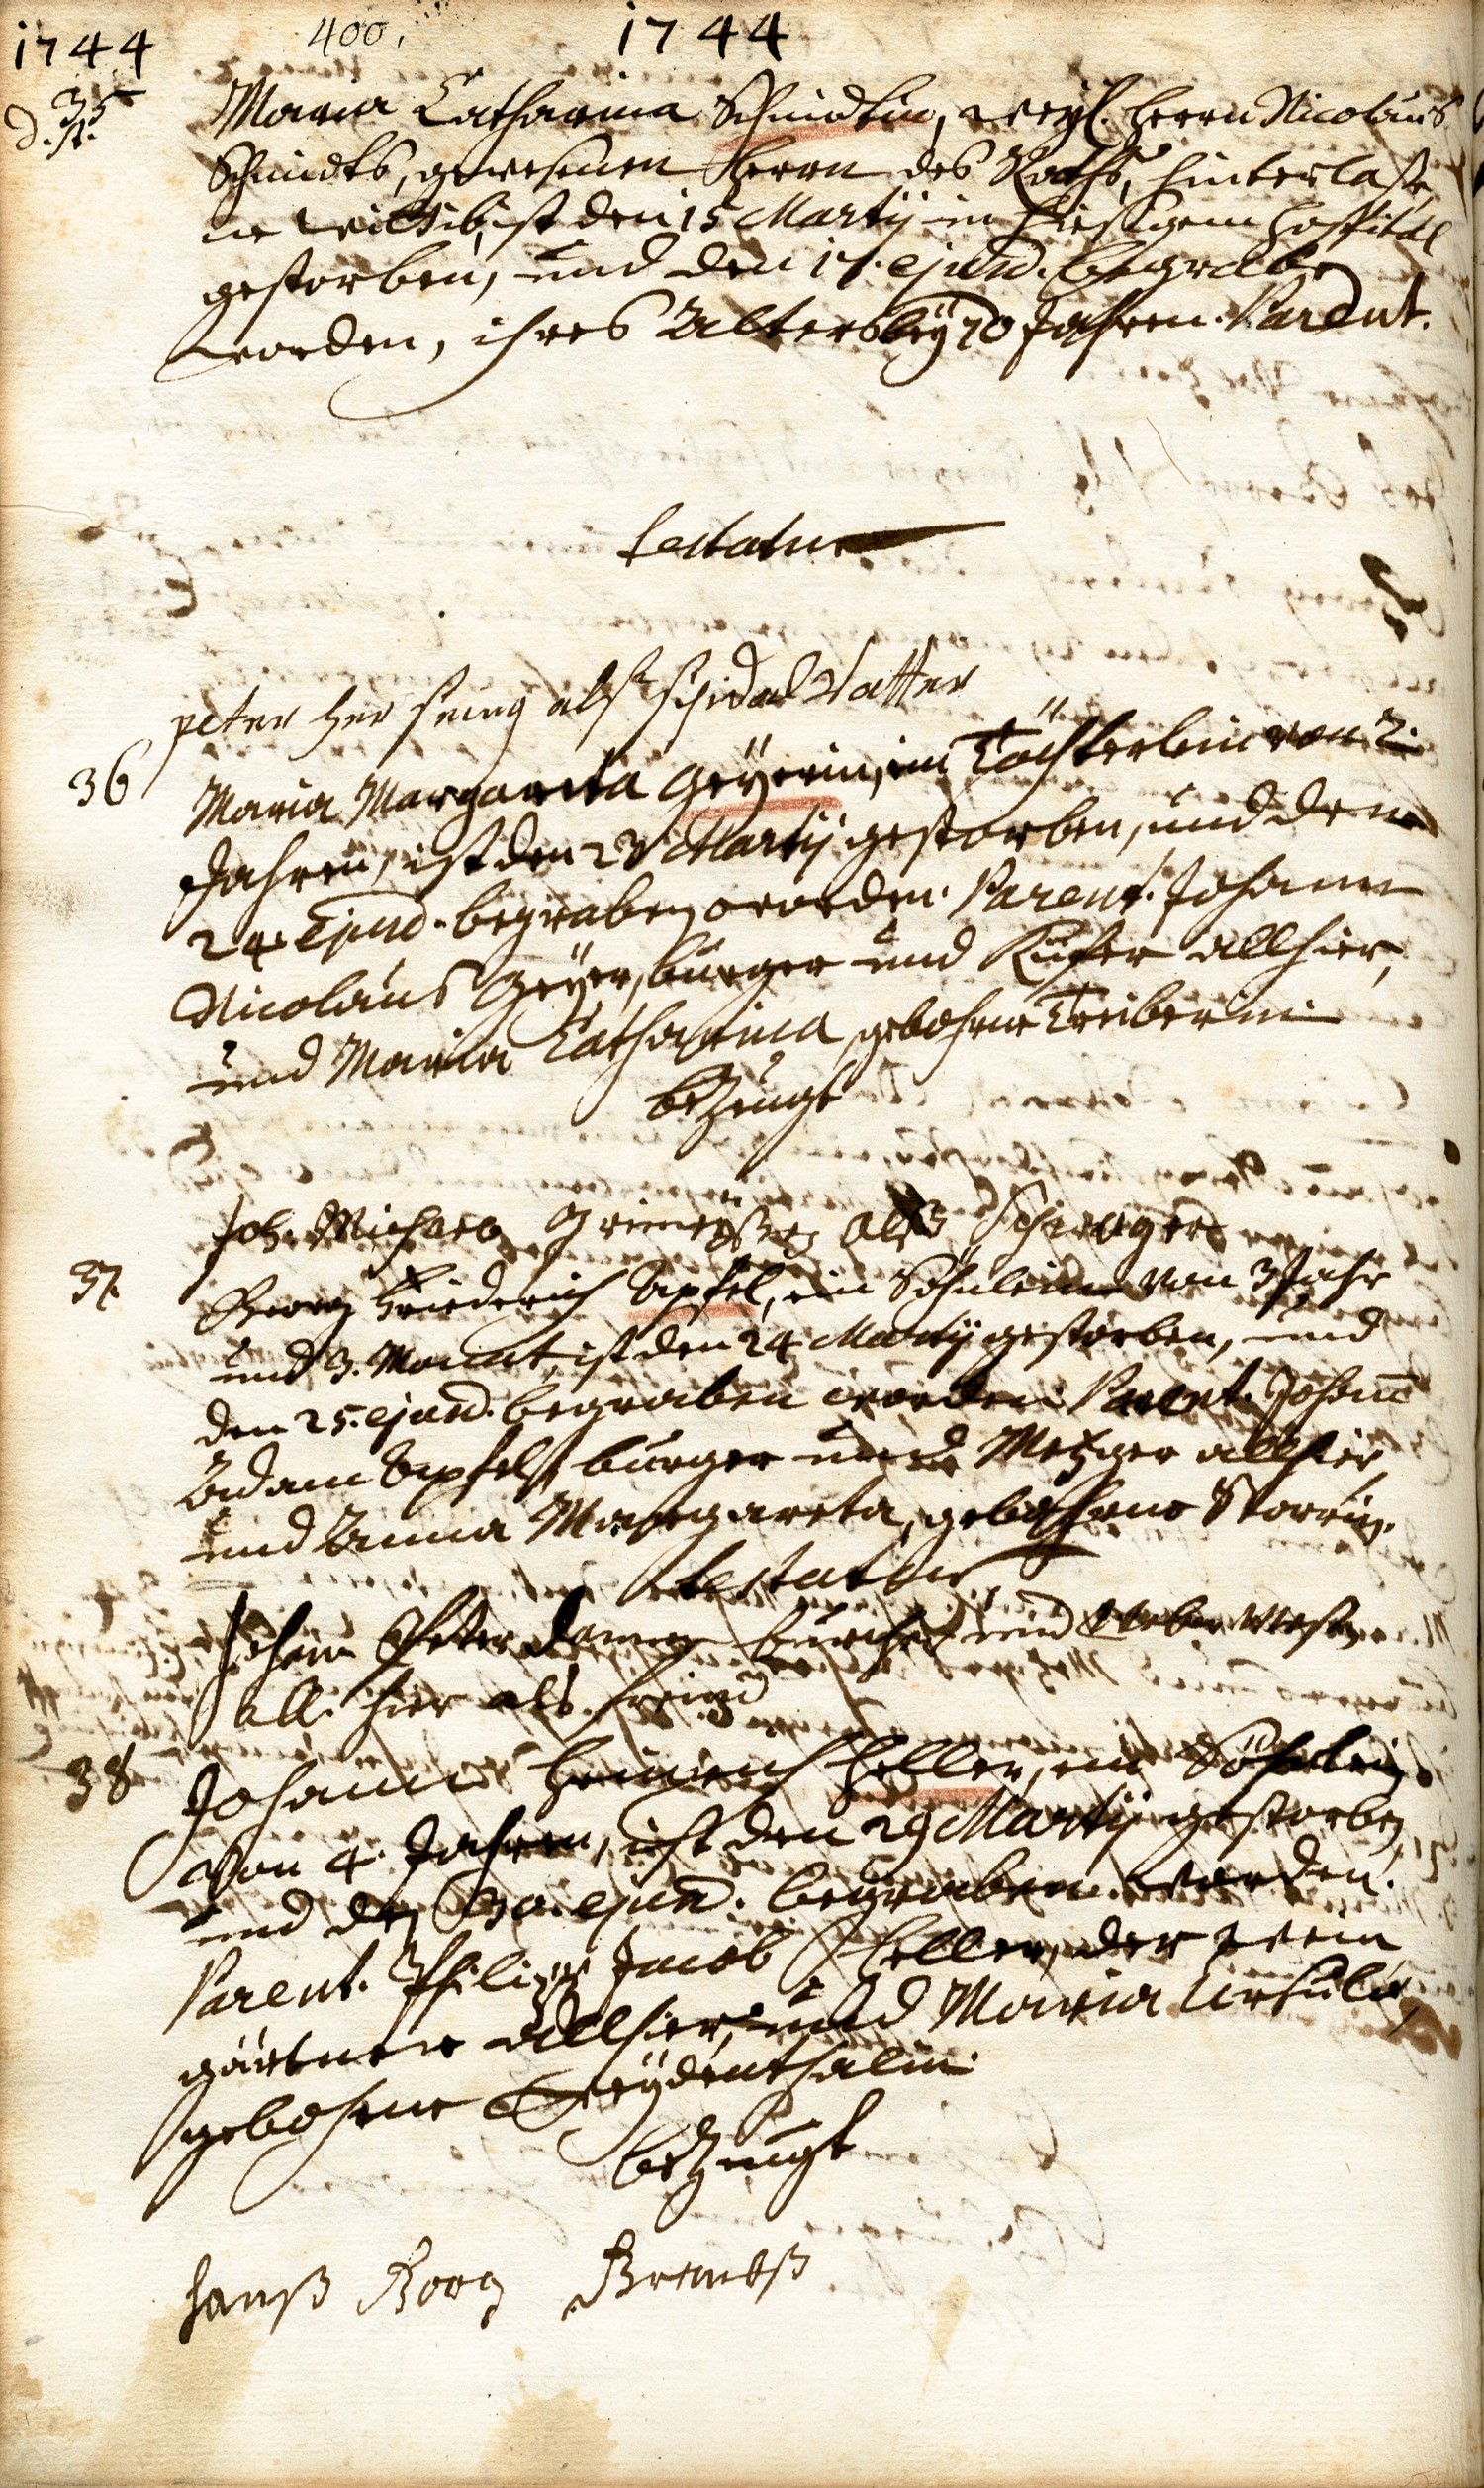 1744 400. 1744
35
d. A.
Maria Catharina Schmidtin, weyl. Herrn Nicolaus
Schmidts, gewesenen Herrn des Raths, hinterlaße
ne Wittib, ist den 15 Martij in hiesigem Hospital
gestorben, und den 17. ejusd. begraben
worden, ihres Alters bey 70 Jahren. Parent.
testatur
peter als Vatter
36 Maria Margareta Geyerin, ein Töchterlein von 2.
Jahren, ist den 23 Martij gestorben, und den
24. Ejusd. begraben worden. Parent. Johann
Nicolaus Geyer, burger und Küfer allhier,
und Maria Catharina gebohrne Treiberin
bezeugt
Joh. Michael als Schwager
37. Georg Friederich Apfel, ein Söhnlein von 3 Jahr
und 3. Monat, ist den 24 Martij gestorben, und
den 25. ejusd. begraben worden. Parent. Johann
Adam Apfel, burger und Metzger allhier,
und Anna Margareta, gebohrne Storrin.
testatur
Johan Peter burger und
all hier als freind
38 Johann Heinrich Heller, ein Söhnlein
von 4. Jahren, ist den 29 Martij gestorben,
und den 30. ejusd. begraben worden.
Parent. Philipp Jacob Heller, der Wein
gärtner allhier, und Maria Ursula,
gebohrne Seydenthalin.
bezeugt
hanß Georg